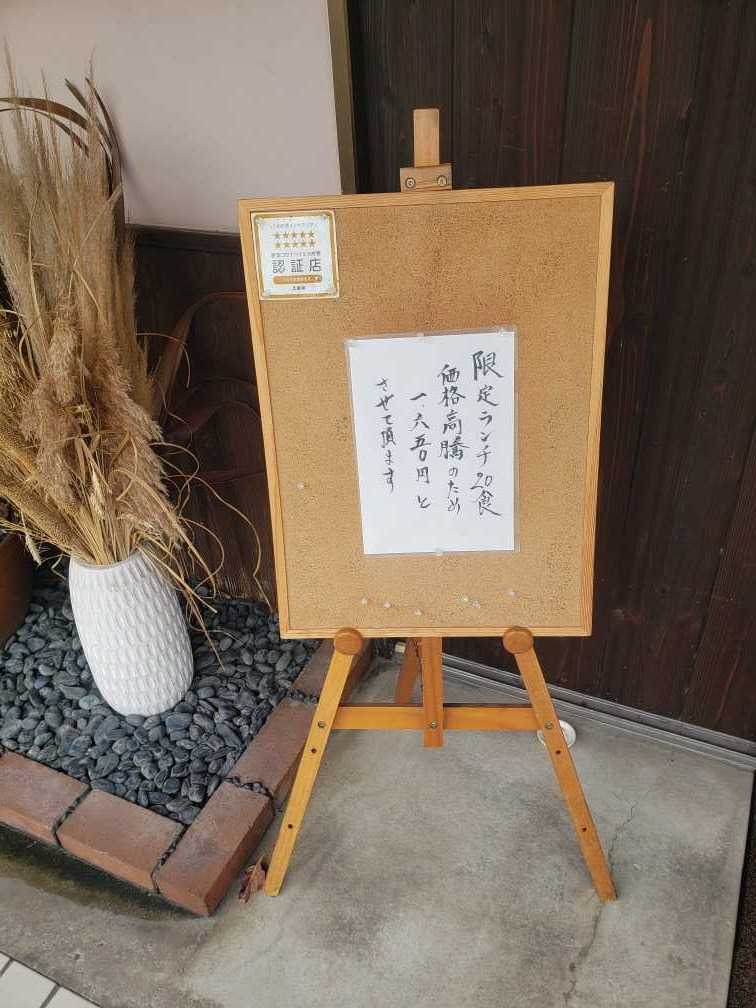 認証店
限定ランチ20食
価格高騰のため
一、六五0円と
させて頂ます